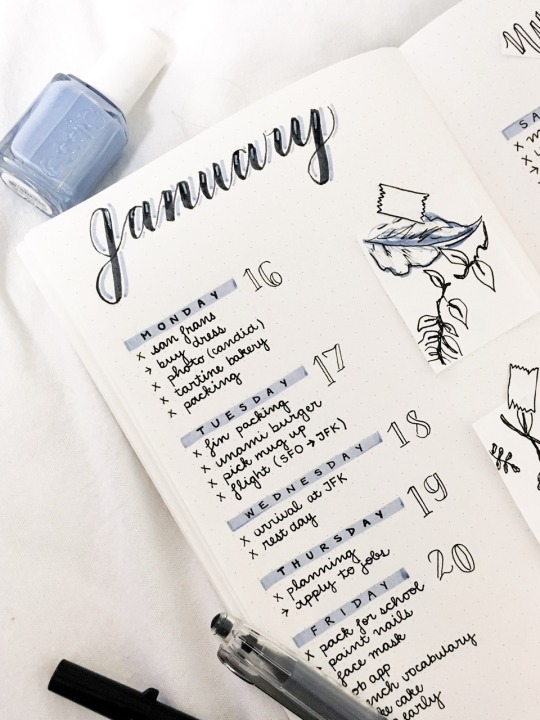 essie
January
MONDAY 16
x san frans
→ buy dress
x photo (candid)
x tartine bakery
x packing
TUESDAY 17
x fin packing
x umami burger
x pick mug up
x flight (SFO → JFK)
WEDNESDAY 18
x arrival at JFK
x rest day
THURSDAY 19
x planning
→ apply to jobs
FRIDAY 20
x pack for school
→ paint nails
face mask
ob app
ench vocabulary
ke cake
early
SA